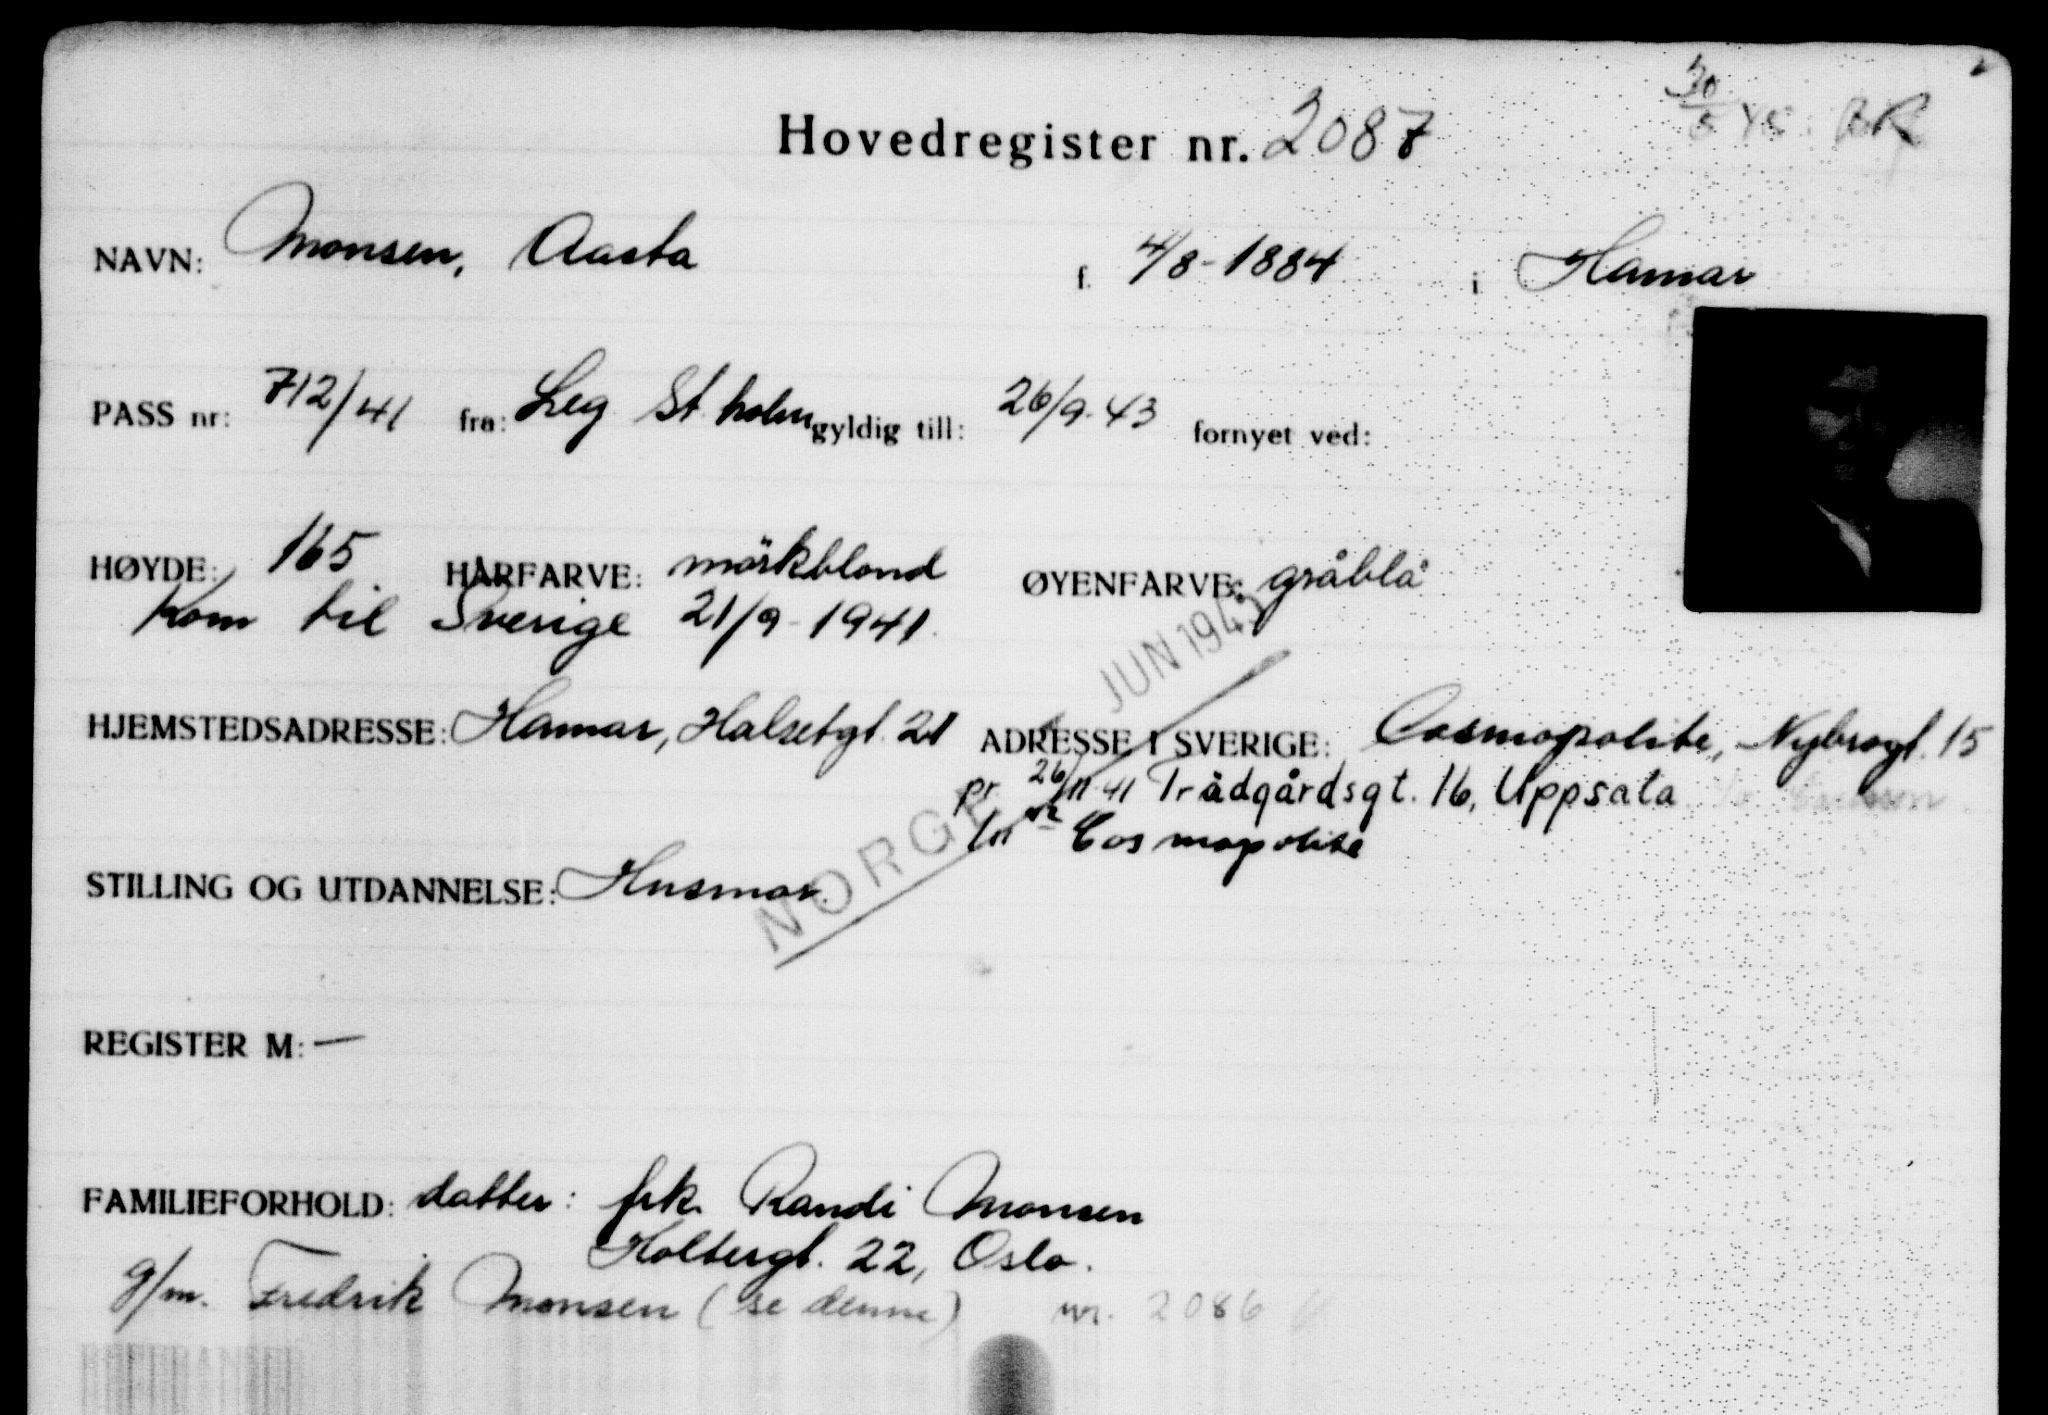 30/5 45. BR
Hovedregister nr. 2087
NAVN: Monsen, Aasta f. 4/8-1884 i Hamar
PASS nr: 712/41 fra: Leg St.holm gyldig till: 26/9-43 fornyet ved:
HØYDE: 165 HÅRFARVE: mörkblond ØYENFARVE: gråblå
Kom til Sverige 21/9-1941.
JUN 1945
HJEMSTEDSADRESSE: Hamar, Halsetgt. 21 ADRESSE I SVERIGE: Cosmopolite, Nybrogt. 15
pr 26/11-41 Trädgårdsgt. 16, Uppsala
Cosmopolite
NORGE
STILLING OG UTDANNELSE: Husmor.
REGISTER M: —
FAMILIEFORHOLD: datter: frk. Randi Monsen
Holbergt. 22, Oslo.
g/m. Fredrik Monsen (se denne) nr. 2086